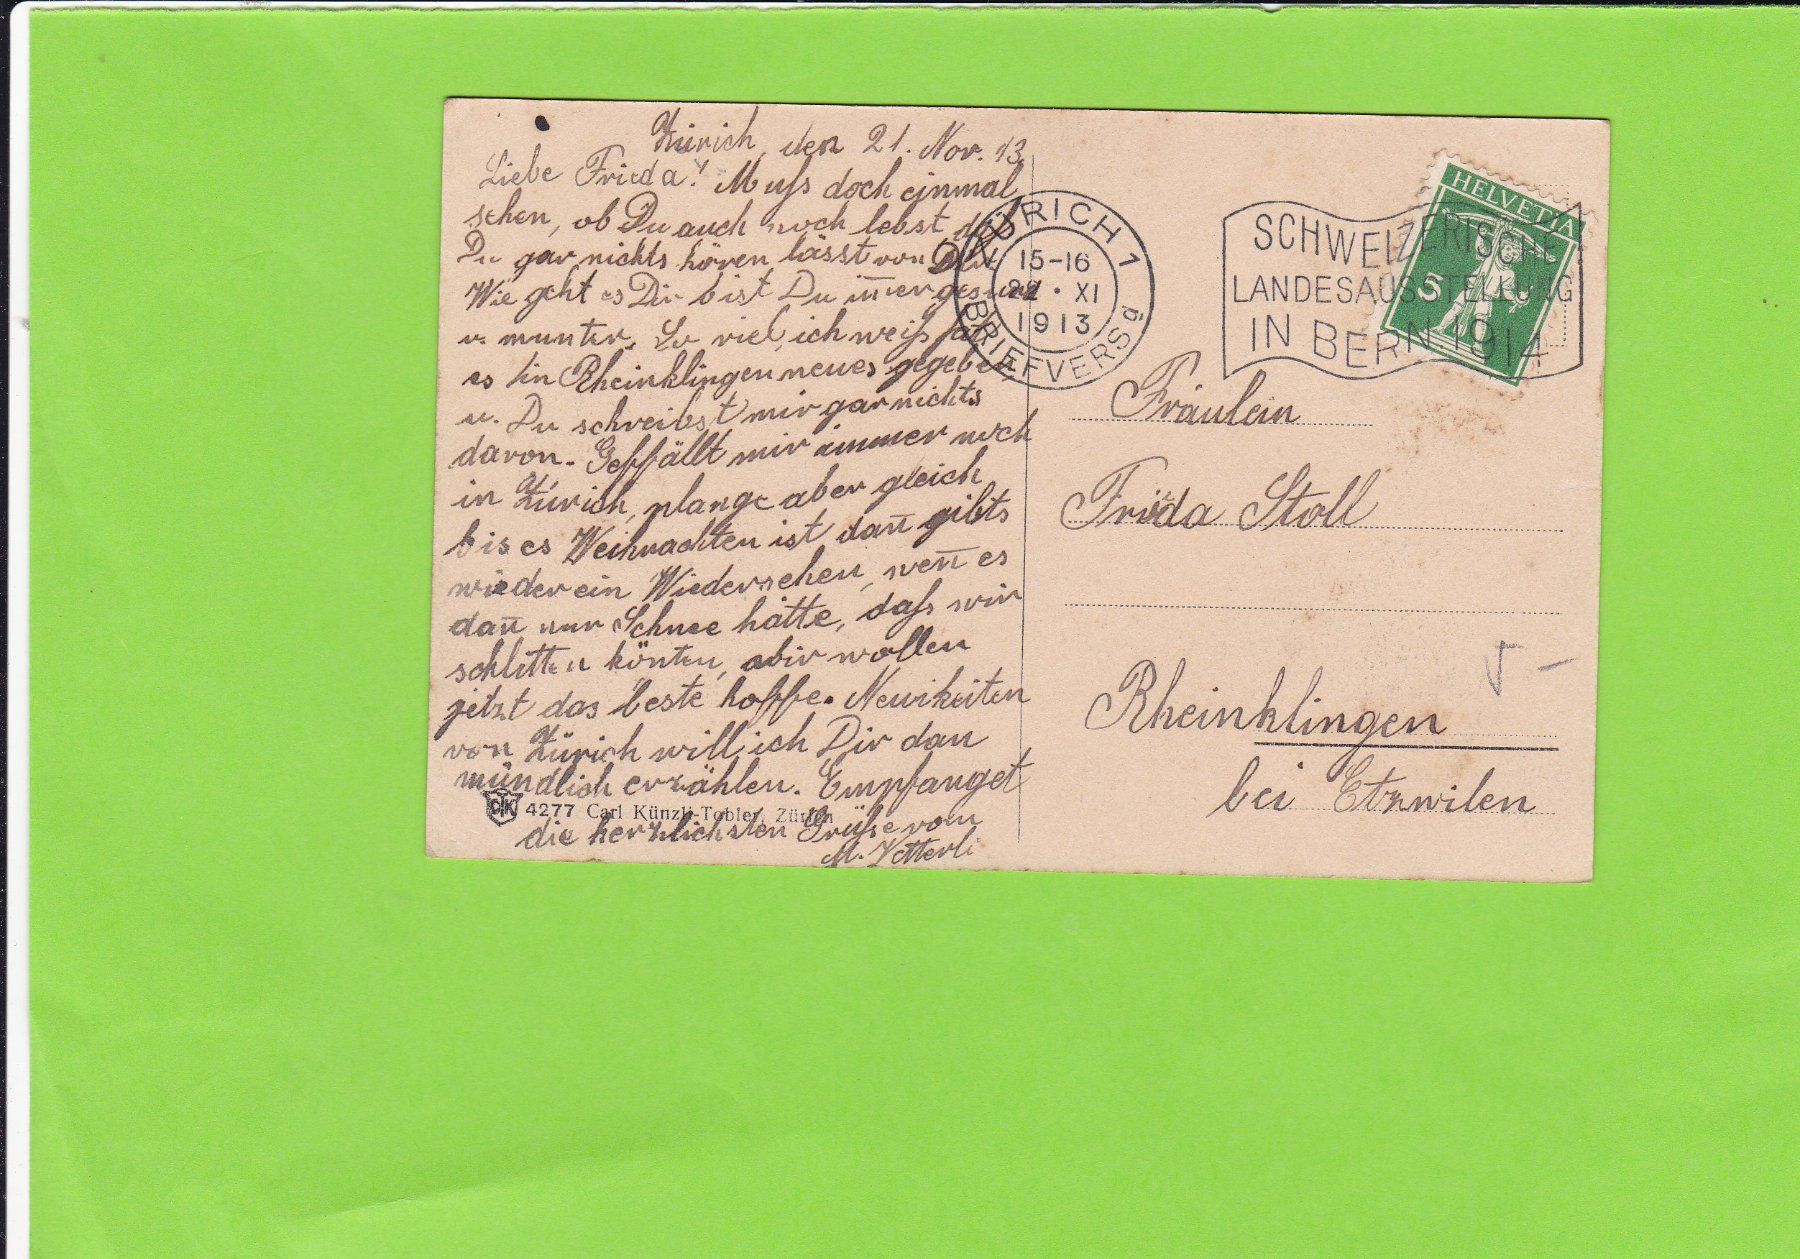 Zürich, den 21. Nov. 13
Liebe Frieda! Muſs doch einmal
sehen, ob Du auch noch lebst, daß
Du gar nichts hören lässt von Dir
Wie geht es Dir bist Du im̅er gesund
u. munter. So viel ich weiß hat
es in Rheinklingen neues gegeben
u. Du schreibst mir gar nichts
davon. Gefällt mir immer noch
in Zürich, plange aber gleich
bis es Weihnachten ist dan̅ gibts
wieder ein Wiedersehen, wen̅ es
dan̅ nur Schnee hätte, daſs wir
schlitten könten, abir wollen
jetzt das beste hoffe. Neuikeiten
von Zürich will ich Dir dan
mündlich erzählen. Empfanget
die herzlichsten Grüſse vom
M. Vetterli
CTK 4277 Carl Künzli-Tobler, Zürich
ZÜRICH 1
15-16
22. XI
1913
BRIEFVERSd
SCHWEIZERISCHE
LANDESAUSSTELLUNG
IN BERN 1914
HELVETIA
5
Fräulein
Frida Stoll
Rheinklingen
bei Etzwilen